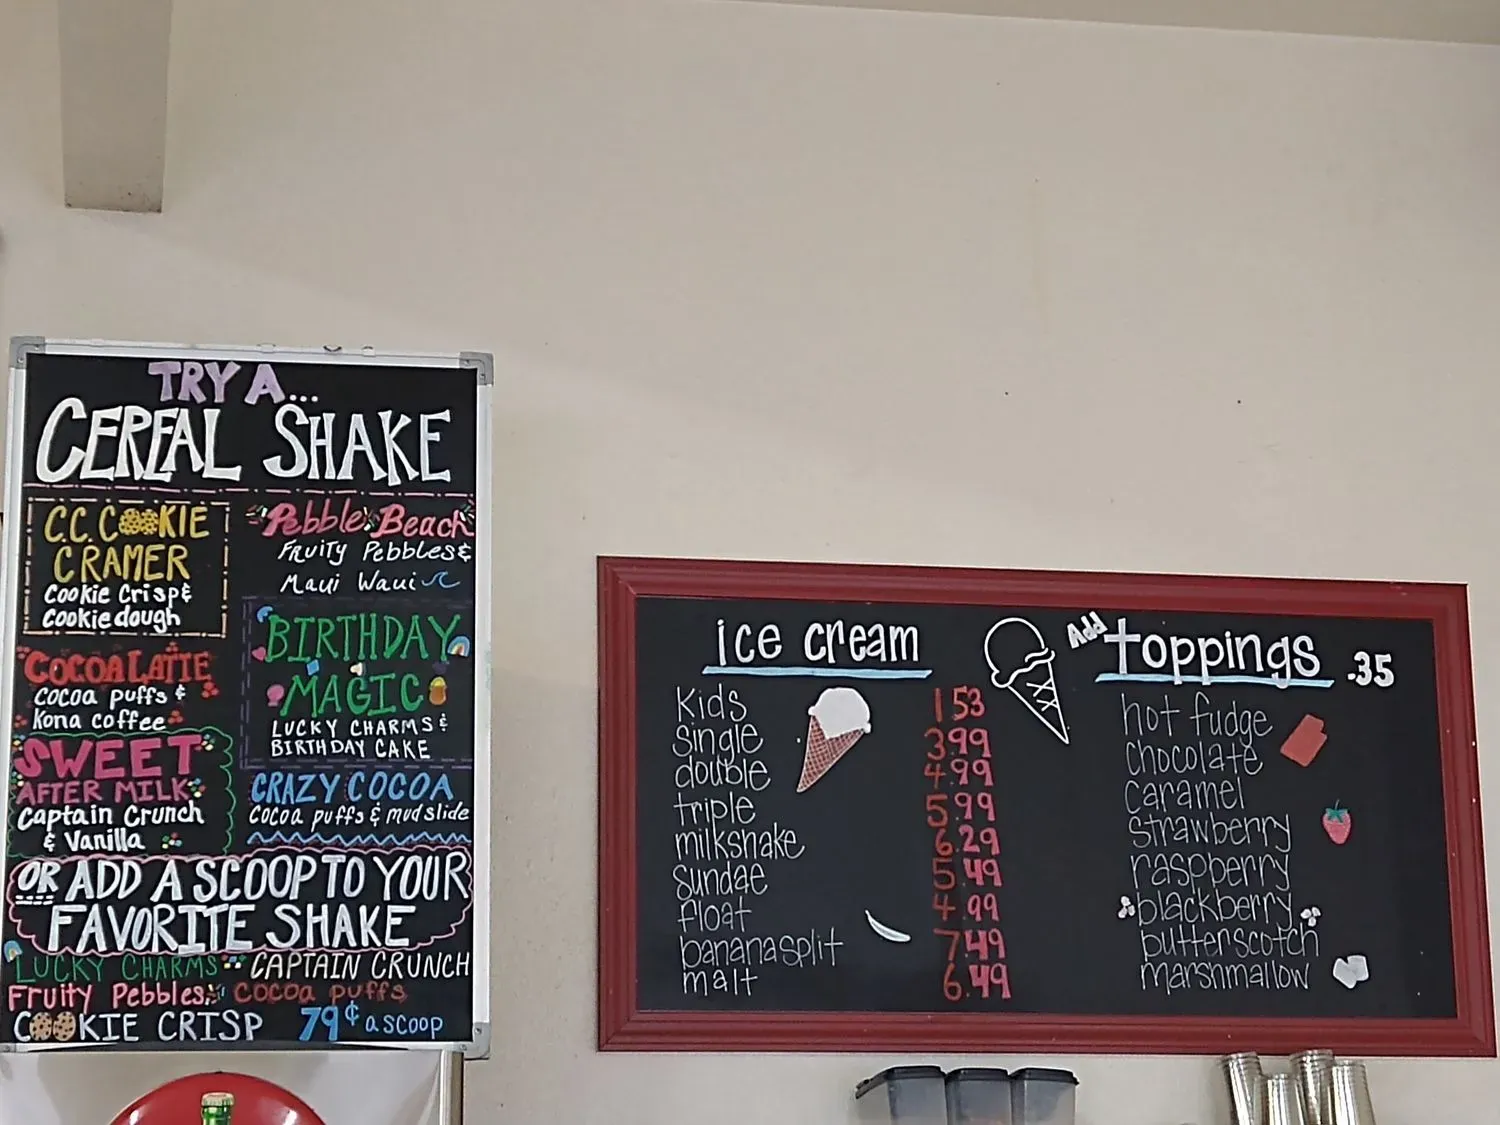 TRY A...
CEREAL SHAKE
C.C. COOKIE
CRAMER
Cookie Crisp &
Cookie dough
Pebble Beach
Fruity Pebbles &
Maui Waui
COCOA LATTE
Cocoa puffs &
Kona coffee
BIRTHDAY
MAGIC
LUCKY CHARMS &
BIRTHDAY CAKE
SWEET
AFTER MILK
Captain Crunch
& Vanilla
CRAZY COCOA
Cocoa puffs & mudslide
OR ADD A SCOOP TO YOUR
FAVORITE SHAKE
LUCKY CHARMS CAPTAIN CRUNCH
Fruity Pebbles COCOA PUFFS
COOKIE CRISP 79¢ a scoop
ice cream
kids 1.53
single 3.99
double 4.99
triple 5.99
milkshake 6.29
sundae 5.49
float 4.99
banana split 7.49
malt 6.49
Add toppings .35
hot fudge
chocolate
caramel
strawberry
raspberry
blackberry
butterscotch
marshmallow